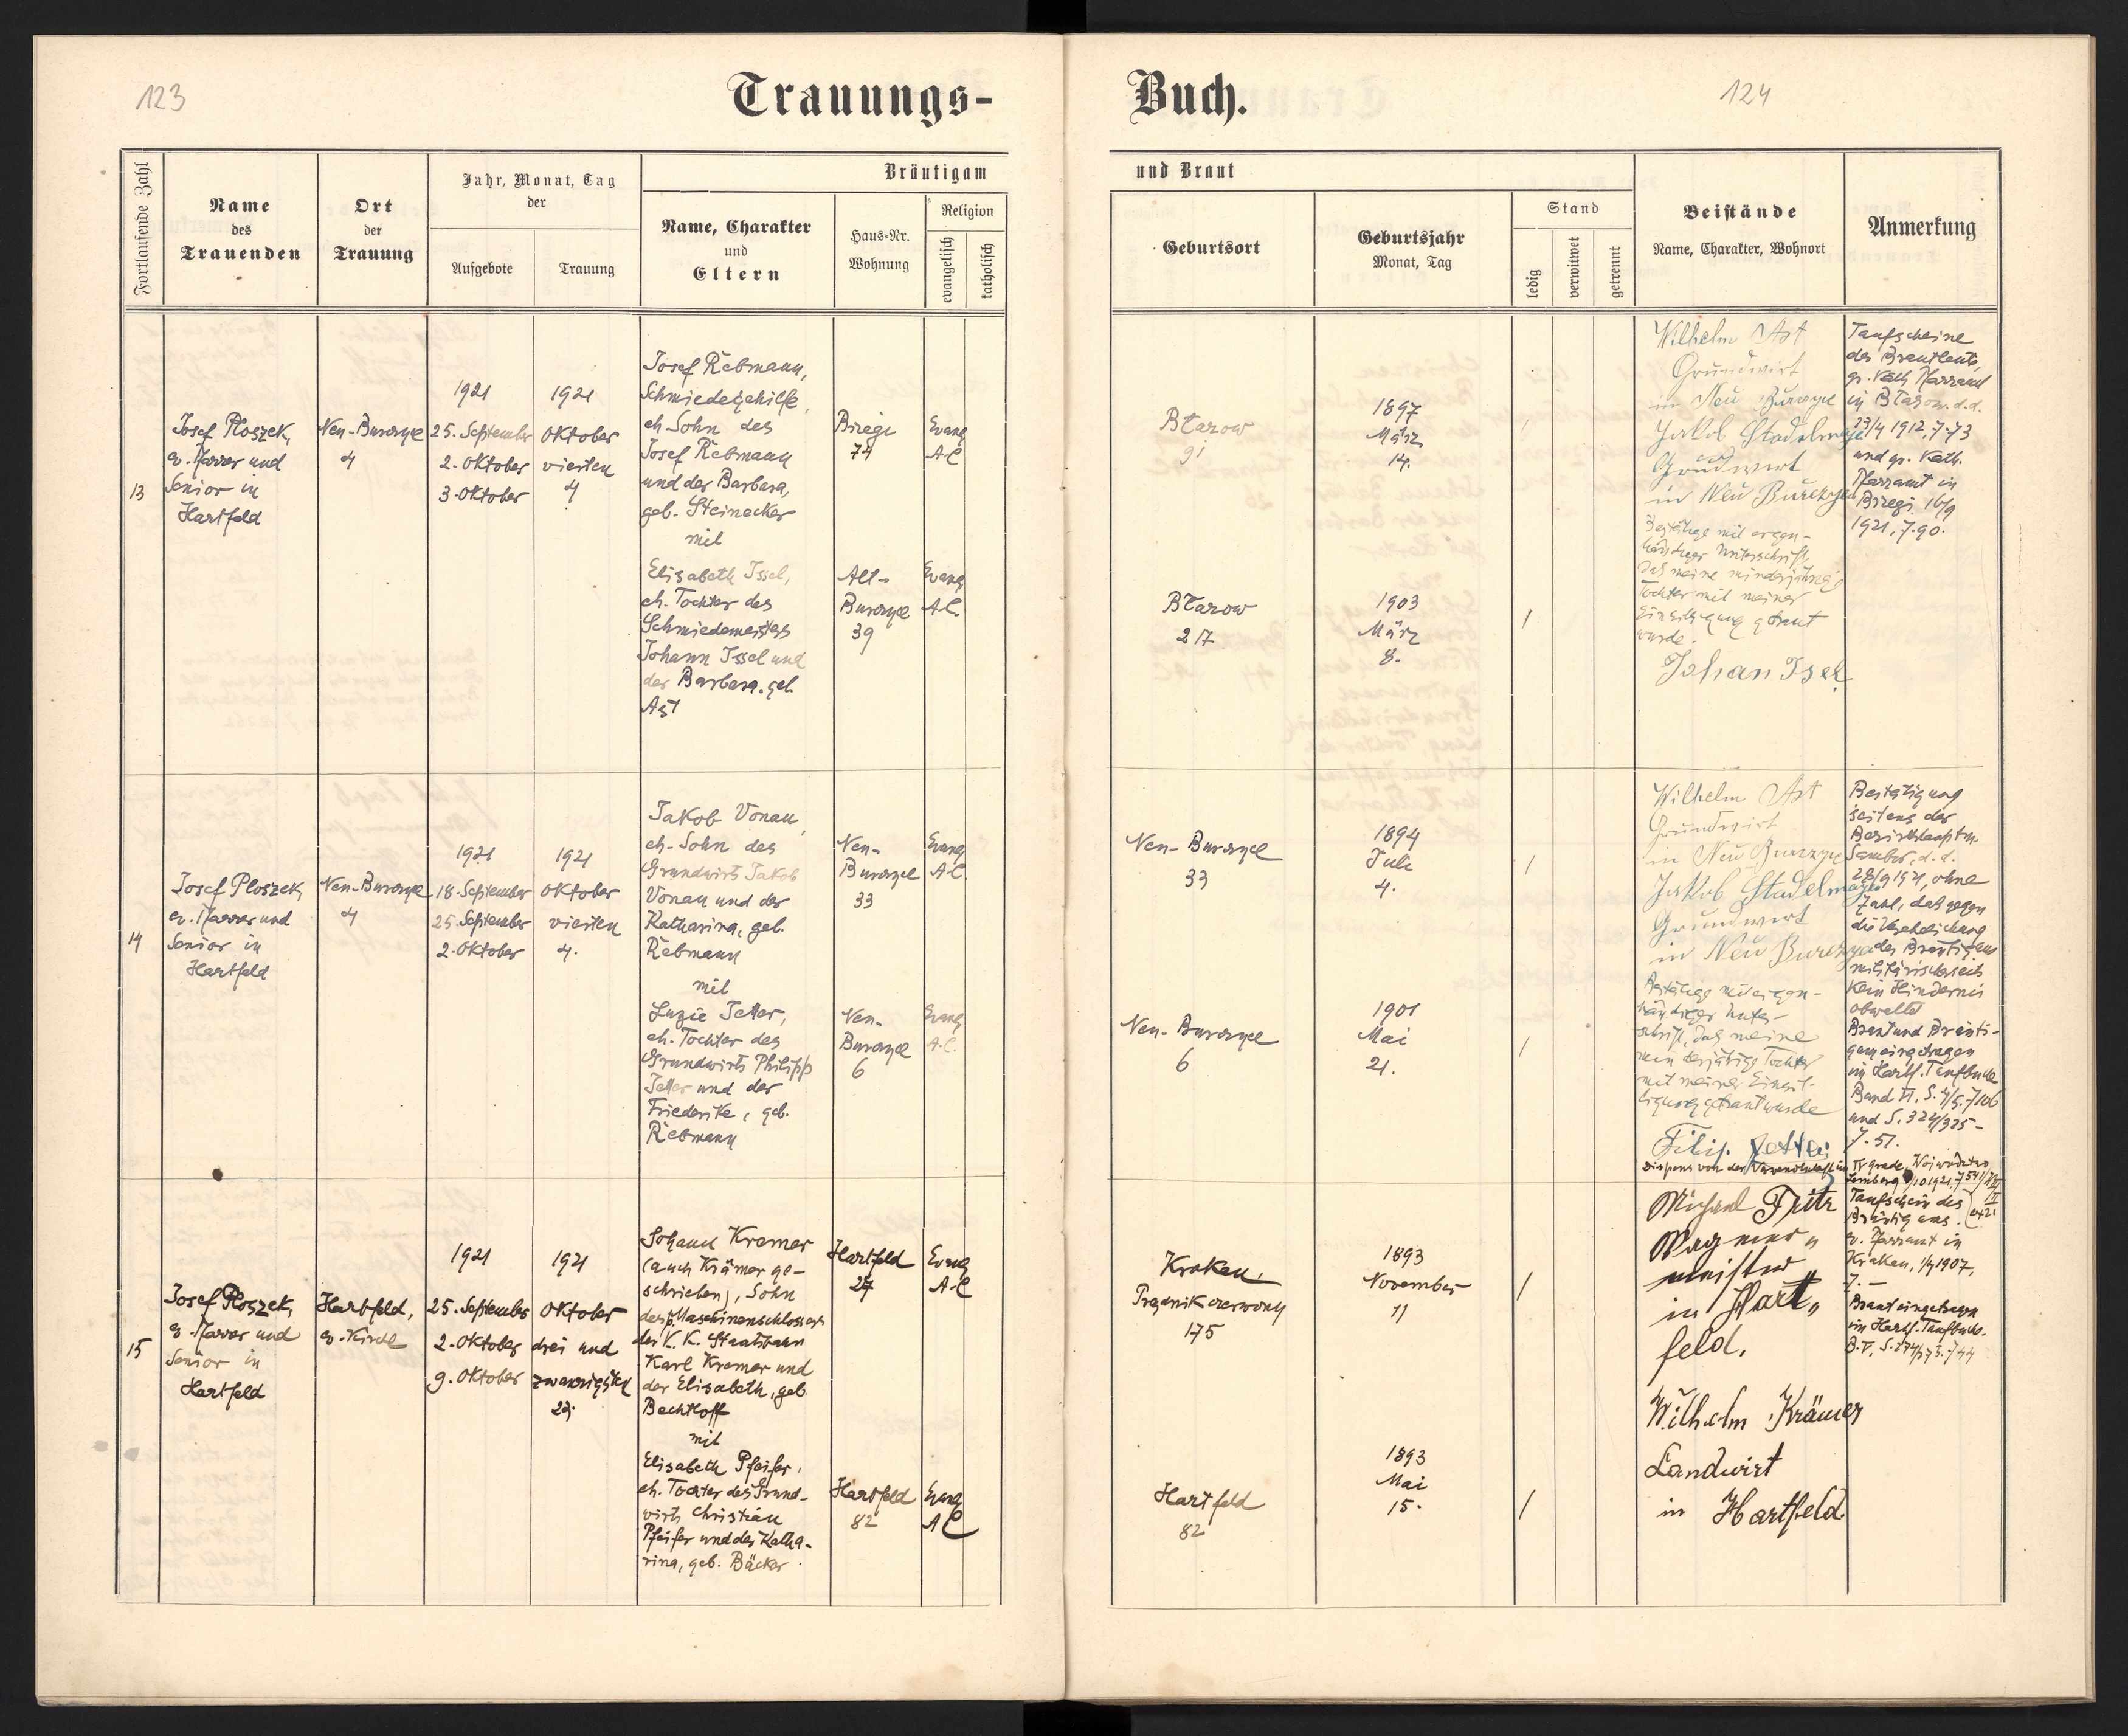 123
Trauungs-
Fortlaufende Zahl
Name
des
Trauenden
Ort
der
Trauung
Jahr, Monat, Tag
der
Aufgebote
Trauung
Bräutigam
Name, Charakter
und
Eltern
Haus-Nr.
Wohnung
Religion
evangelisch
katholisch
13
Josef Ploszek,
ev. Pfarrer und
Senior in
Hartfeld
Neu-Burczyce
4
1921
25. September
2. Oktober
3. Oktober
1921
Oktober
vierten
4
Josef Rebmann,
Schmiedegehilfe,
eh. Sohn des
Josef Rebmann
und der Barbara,
geb. Steinecker
mit
Elisabeth Issel,
eh. Tochter des
Schmiedemeisters
Johann Issel und
der Barbara, geb.
Ast
Brzegi
74
Evang
A.C
Alt-
Burczyce
39
Evang
A.C.
14
Josef Ploszek,
ev. Pfarrer und
Senior in
Hartfeld
Neu-Burczyce
4
1921
18. September
25. September
2. Oktober
1921
Oktober
vierten
4.
Jakob Vonau,
eh. Sohn des
Grundwirts Jakob
Vonau und der
Katharina, geb.
Rebmann
mit
Luzie Jetter,
eh. Tochter des
Grundwirts Philipp
Jetter und der
Friederike, geb.
Rebmann
Neu-
Burczyce
33
Evang
A.C.
Neu-
Burczyce
6
Evang
A.C.
15
Josef Ploszek,
ev. Pfarrer und
Senior in
Hartfeld
Hartfeld,
ev. Kirche
1921
25. September
2. Oktober
9. Oktober
1921
Oktober
drei und
zwanzigsten
23.
Johann Kremer
(auch Krämer ge-
schrieben), Sohn
des Maschinenschlossers
der K. K. Staatsbahn
Karl Kremer und
der Elisabeth, geb
Bechtloff
mit
Elisabeth Pfeifer,
eh. Tochter des Grund-
wirts Christian
Pfeifer und der Katha-
rina, geb. Bäcker.
Hartfeld
27
Evang
A.C
Hartfeld
82
Evang
A.C
Buch.
124
und Braut
Geburtsort
Geburtsjahr
Monat, Tag
Stand
ledig
verwitwet
getrennt
Beistände
Name, Charakter, Wohnort
Anmerkung
Błazow
91
1897
März
14.
/
Błazow
217
1903
März
8.
/
Wilhelm Ast
Grundwirt
in Neu Burczyce
Jakob Stadelmayer
Grundwirt
in Neu Burczyce
Bestätige mit eigen-
händiger Unterschrift,
daß meine minderjährige
Tochter mit meiner
Einwilligung getraut
wurde.
Johan Issel
Taufscheine
der Brautleute,
gr. kath. Pfarramt
in Błazow. d. d.
23/4 1912, Z. 73
und gr. kath.
Pfarramt in
Brzegi 16/9
1921, Z. 90.
Neu-Burczyce
33
1894
Juli
4.
/
Neu-Burczyce
6
1901
Mai
21.
/
Wilhelm Ast
Grundwirt
in Neu Burczyce
Jakob Stadelmayer
Grundwirt
in Neu Burczyce
Bestätige mit eigen-
händiger Unter-
schrift, daß meine
minderjährige Tochter
mit meiner Einwil-
ligung getraut wurde
Filip. Jetter
Bestätigung
seitens der
Bezirkshauptm.
Sambor, d. d.
28/9 1921, ohne
Zahl, daß gegen
die Verehelichung
des Bräutigams
militärischerseits
kein Hindernis
obwaltet
Braut und Bräuti-
gam eingetragen
im Hartf. Taufbuche
Band VI, S. 4/5. Z 106
und S. 324/325 -
Z. 51.
Dispens von der Verwandtschaft im IV grade, Wojewodztwo
Krakau,
Prądnik czerwony
175
1893
November
11
/
Hartfeld
82
1893
Mai
15.
/
Michael Fritz
Wagner„
meister
in Hart„
feld.
Wilhelm Krämer
Landwirt
in Hartfeld.
Taufschein des
Bräutigams.
ev. Pfarramt in
Krakau, 1/4 1907,
Z. —
Braut eingetragen
im Hartf. Taufbuche.
B. V, S. 274/275. Z 44